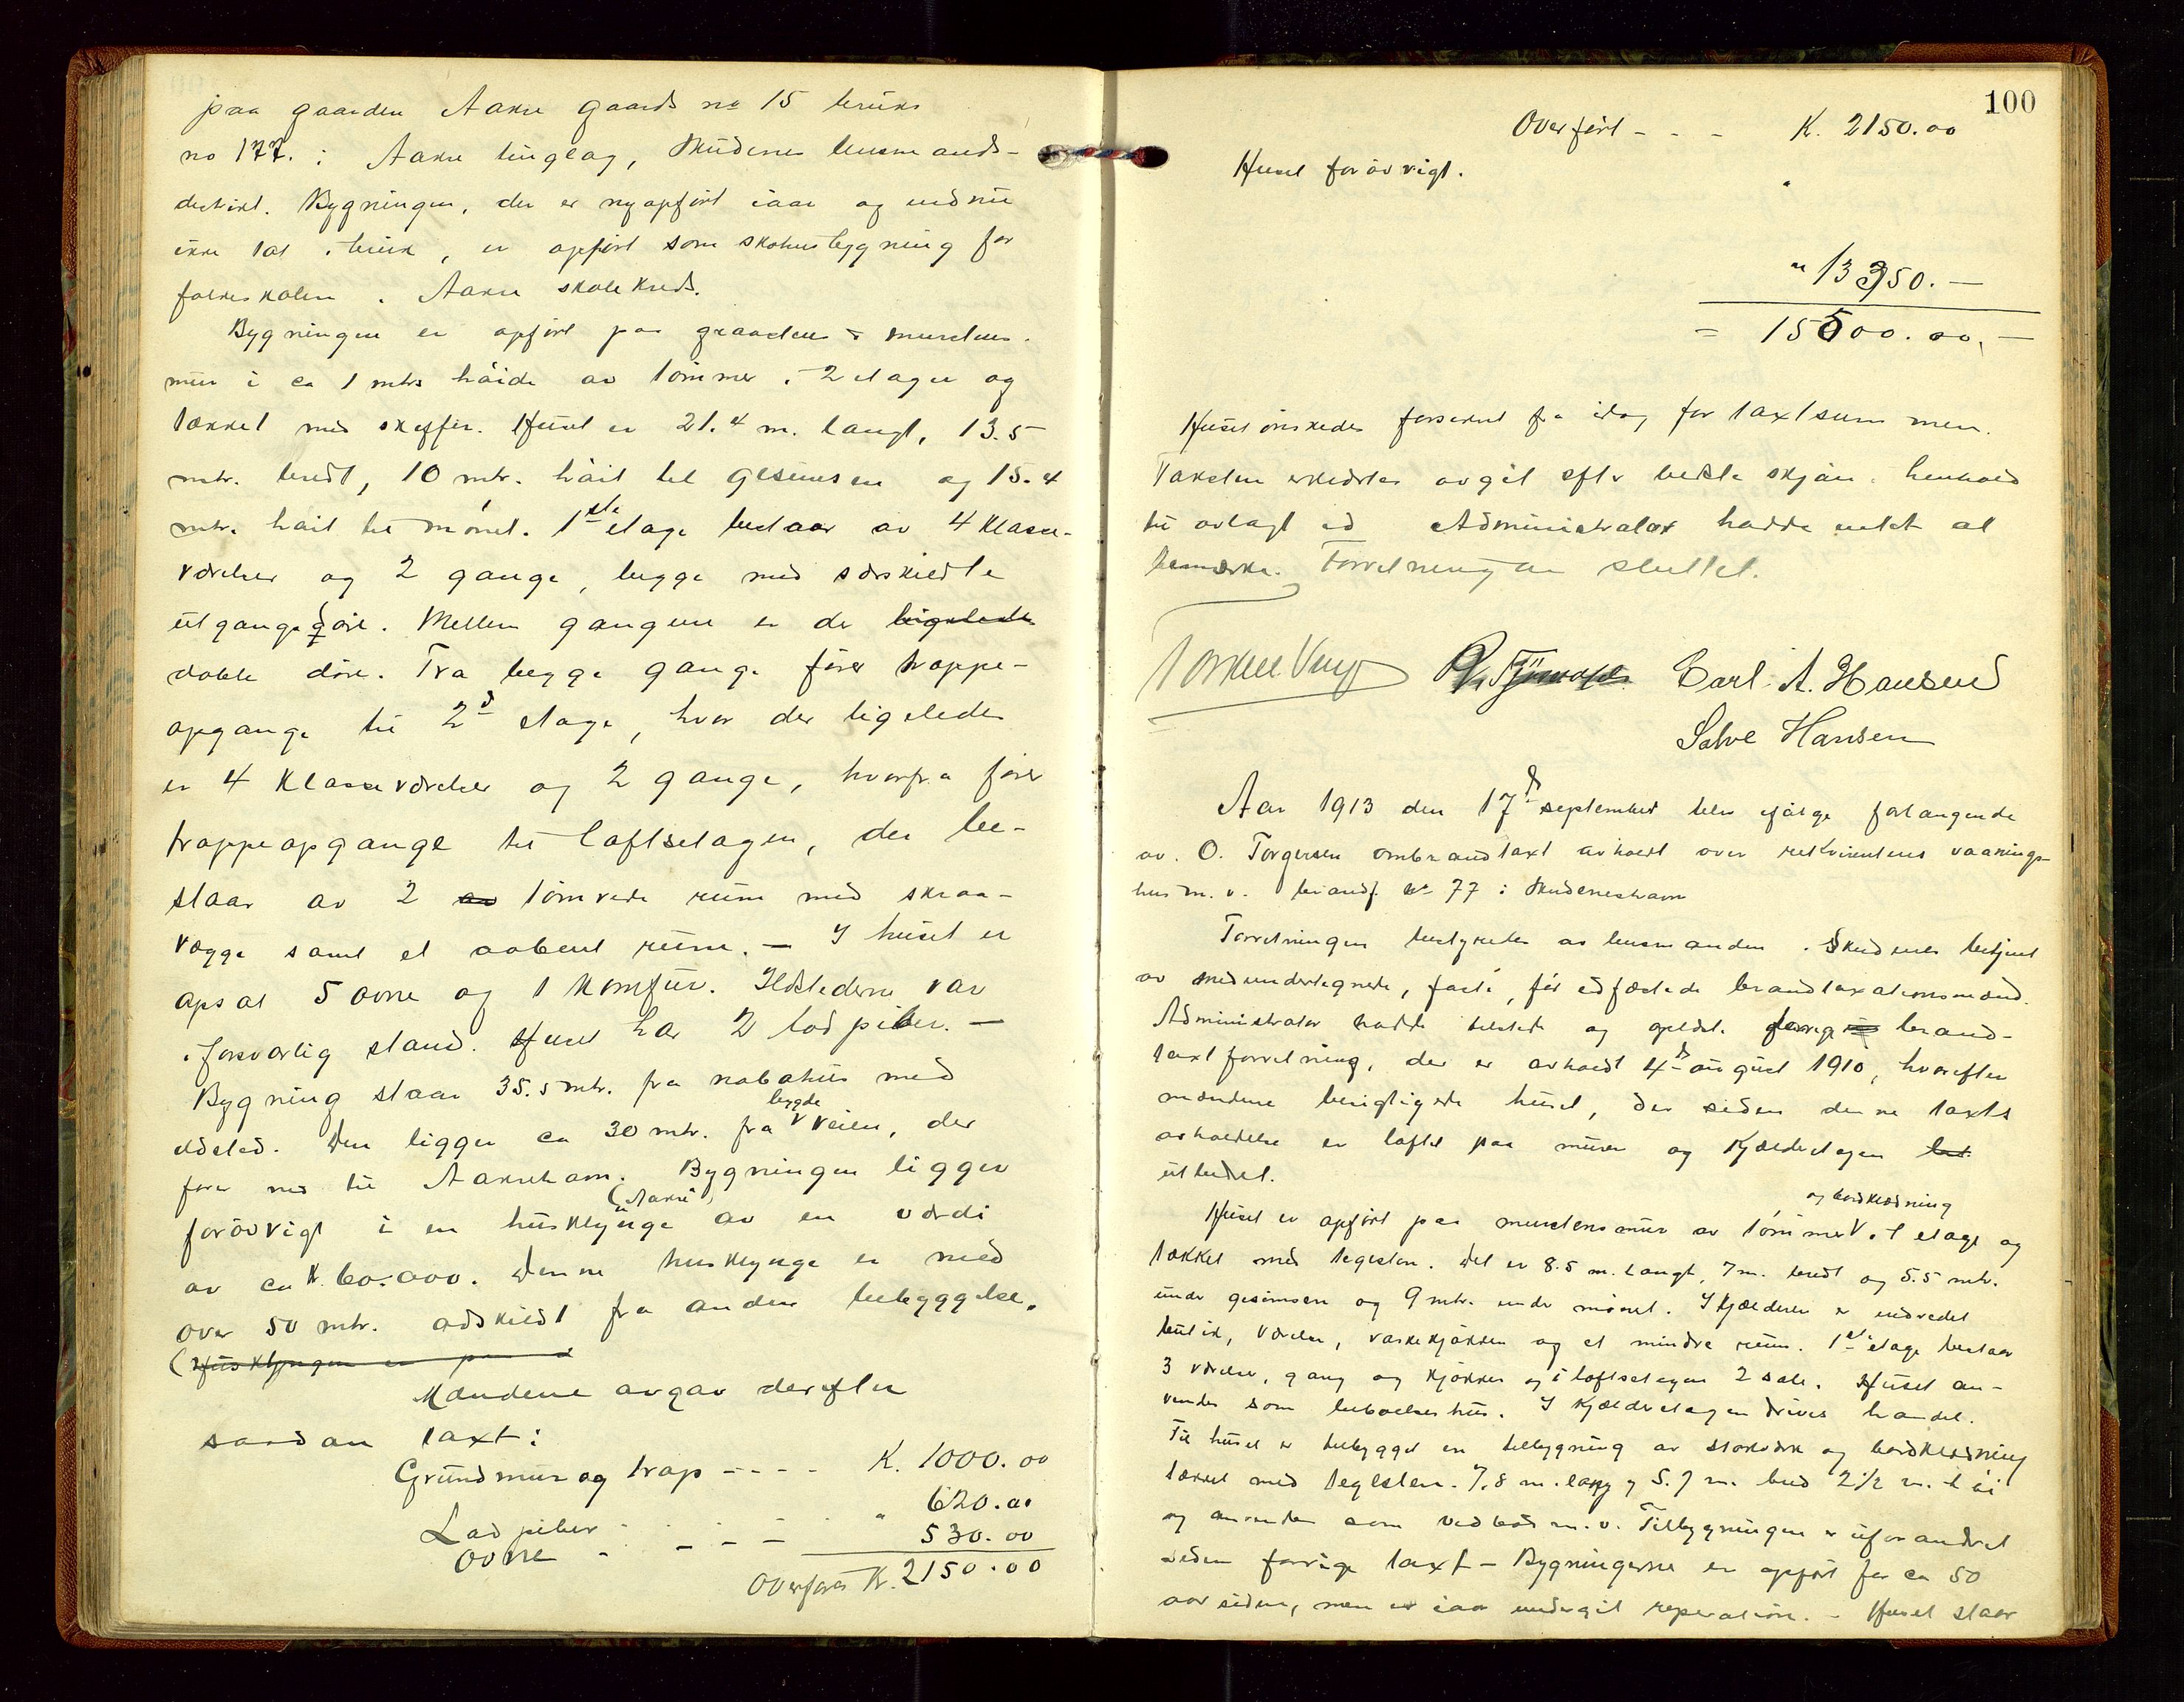 paa gaarden Aakre gaards no 15 bruks
no 177. i Aakre tinglag, Skudenes lensmands-
distrikt. Bygningen, der er nyopført iaar og endnu
ikke tat i bruk, er opført som skolebygning for
folkeskolen i Aakre skolekreds.
Bygningen er opført paa graastens & murstens-
mur i ca 1 mtrs høide av tømmer i 2 etager og
tækket med skiffer. Huset er 21.4 m. langt, 13.5
mtr. bredt, 10 mtr. høit til gesimsen og 15.4
mtr. høit til mønet. 1ste etage bestaar av 4 klasse-
værelser og 2 gange, begge med særskildte
utgangsdøre. Mellem gangene er der ligeledes
doble døre. Fra begge gange fører trappe-
opgange til 2d etage, hvor der ligeledes
er 4 klasseværelser og 2 gange, hvorfra fører
trappeopgange til loftsetagen, der be-
staar av 2 av tømrede rum med skraa-
vægge samt et aabent rum. — I huset er
opsat 5 ovne og 1 komfur. Ildstederne var
i forsvarlig stand. Huset har 2 lodpiber. —
Bygning staar 35.5 mtr. fra nabohus med
ildsted. Den ligger ca 30 mtr. fra bygde veien, der
fører ned til Aakrehavn. Bygningen ligger
forøvrigt i en husklynge (Aakre) av en værdi
av ca K. 60.000. Denne husklynge er med
over 50 mtr. adskildt fra anden bebyggelse.
(Husklyngen er paa
Mændene avgav derefter
saadan taxt:
Grundmur og trap - - - - K. 1000.00
Lodpiber - - - - " 620.00
Ovne - - - - 530.00
Overføres Kr. 2150.00
100
Overført - - - K. 2150.00
Huset forøvrigt.
" 13350.—
= 15500.00.—
Huset ønskedes forsikret fra idag for taxtsummen.
Taksten erklærtes avgit efter bedste skjøn i henhold
til avlagt ed Administrator hadde intet at
bemærke. Forretningen sluttet.
Torkel Carl A. Hansen
Salve Hansen
Aar 1913 den 17d september blev ifølge forlangende
av O. Torgersen ombrandtaxt avholdt over rekvirentens vaanings-
hus m. v. brandf. No 77 i Skudeneshavn
Forretningen bestyrtes av lensmanden i Skudenes betjent
av medundertegnede, faste, før edfæstede brandtaxationsmænd.
Administrator hadde tilstede og oplæste forrige brand-
taxtforretning, der er avholdt 4d august 1910, hvorefter
mændene besigtigede huset, der siden denne taxts
avholdelse er løftet paa muren og kjælderetagen
utbedret.
Huset er opført paa murstensmur av tømmer og bordklædning i 1 etage og
tækket med tegelsten. Det er 8.5 m. langt, 7 m. bredt og 5.5 mtr.
under gesimsen og 9 mtr. under mønet. I kjælderen er indredet
butik, værelse, vaskekjøkken og et mindre rum. 1ste etage bestaar
3 værelser, gang og kjøkken og i loftsetagen 2 sale. Huset an-
vendes som beboelseshus. I kjælderetagen drives handel.
Til huset er bebygget en tilbygning av stokværk og bordklædning
tækket med tegelsten. 7.8 m. lang og 5.7 m. bred 2½ m. høi
og anvendes som vedbod m. v. Tilbygningen er uforandret
siden forrige taxt — Bygningerne er opført for ca 50
aar siden, men er iaar undergit reperation. — Huset staar